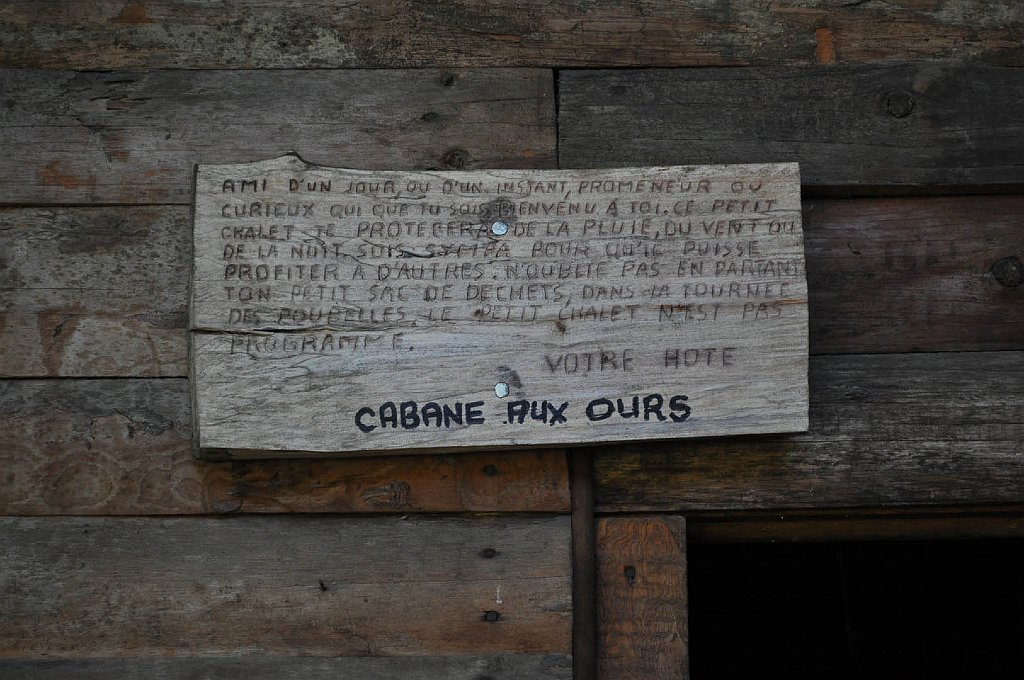 AMI D'UN JOUR, OU D'UN INSTANT, PROMENEUR OU
CURIEUX QUI QUE TU SOIS BIENVENU A TOI. CE PETIT
CHALET TE PROTEGERA DE LA PLUIE, DU VENT OU
DE LA NUIT. SOIS SYMPA POUR QU'IL PUISSE
PROFITER A D'AUTRES. N'OUBLIE PAS EN PARTANT
TON PETIT SAC DE DECHETS, DANS LA TOURNEE
DES POUBELLES LE PETIT CHALET N'EST PAS
PROGRAMME.
VOTRE HOTE
CABANE AUX OURS